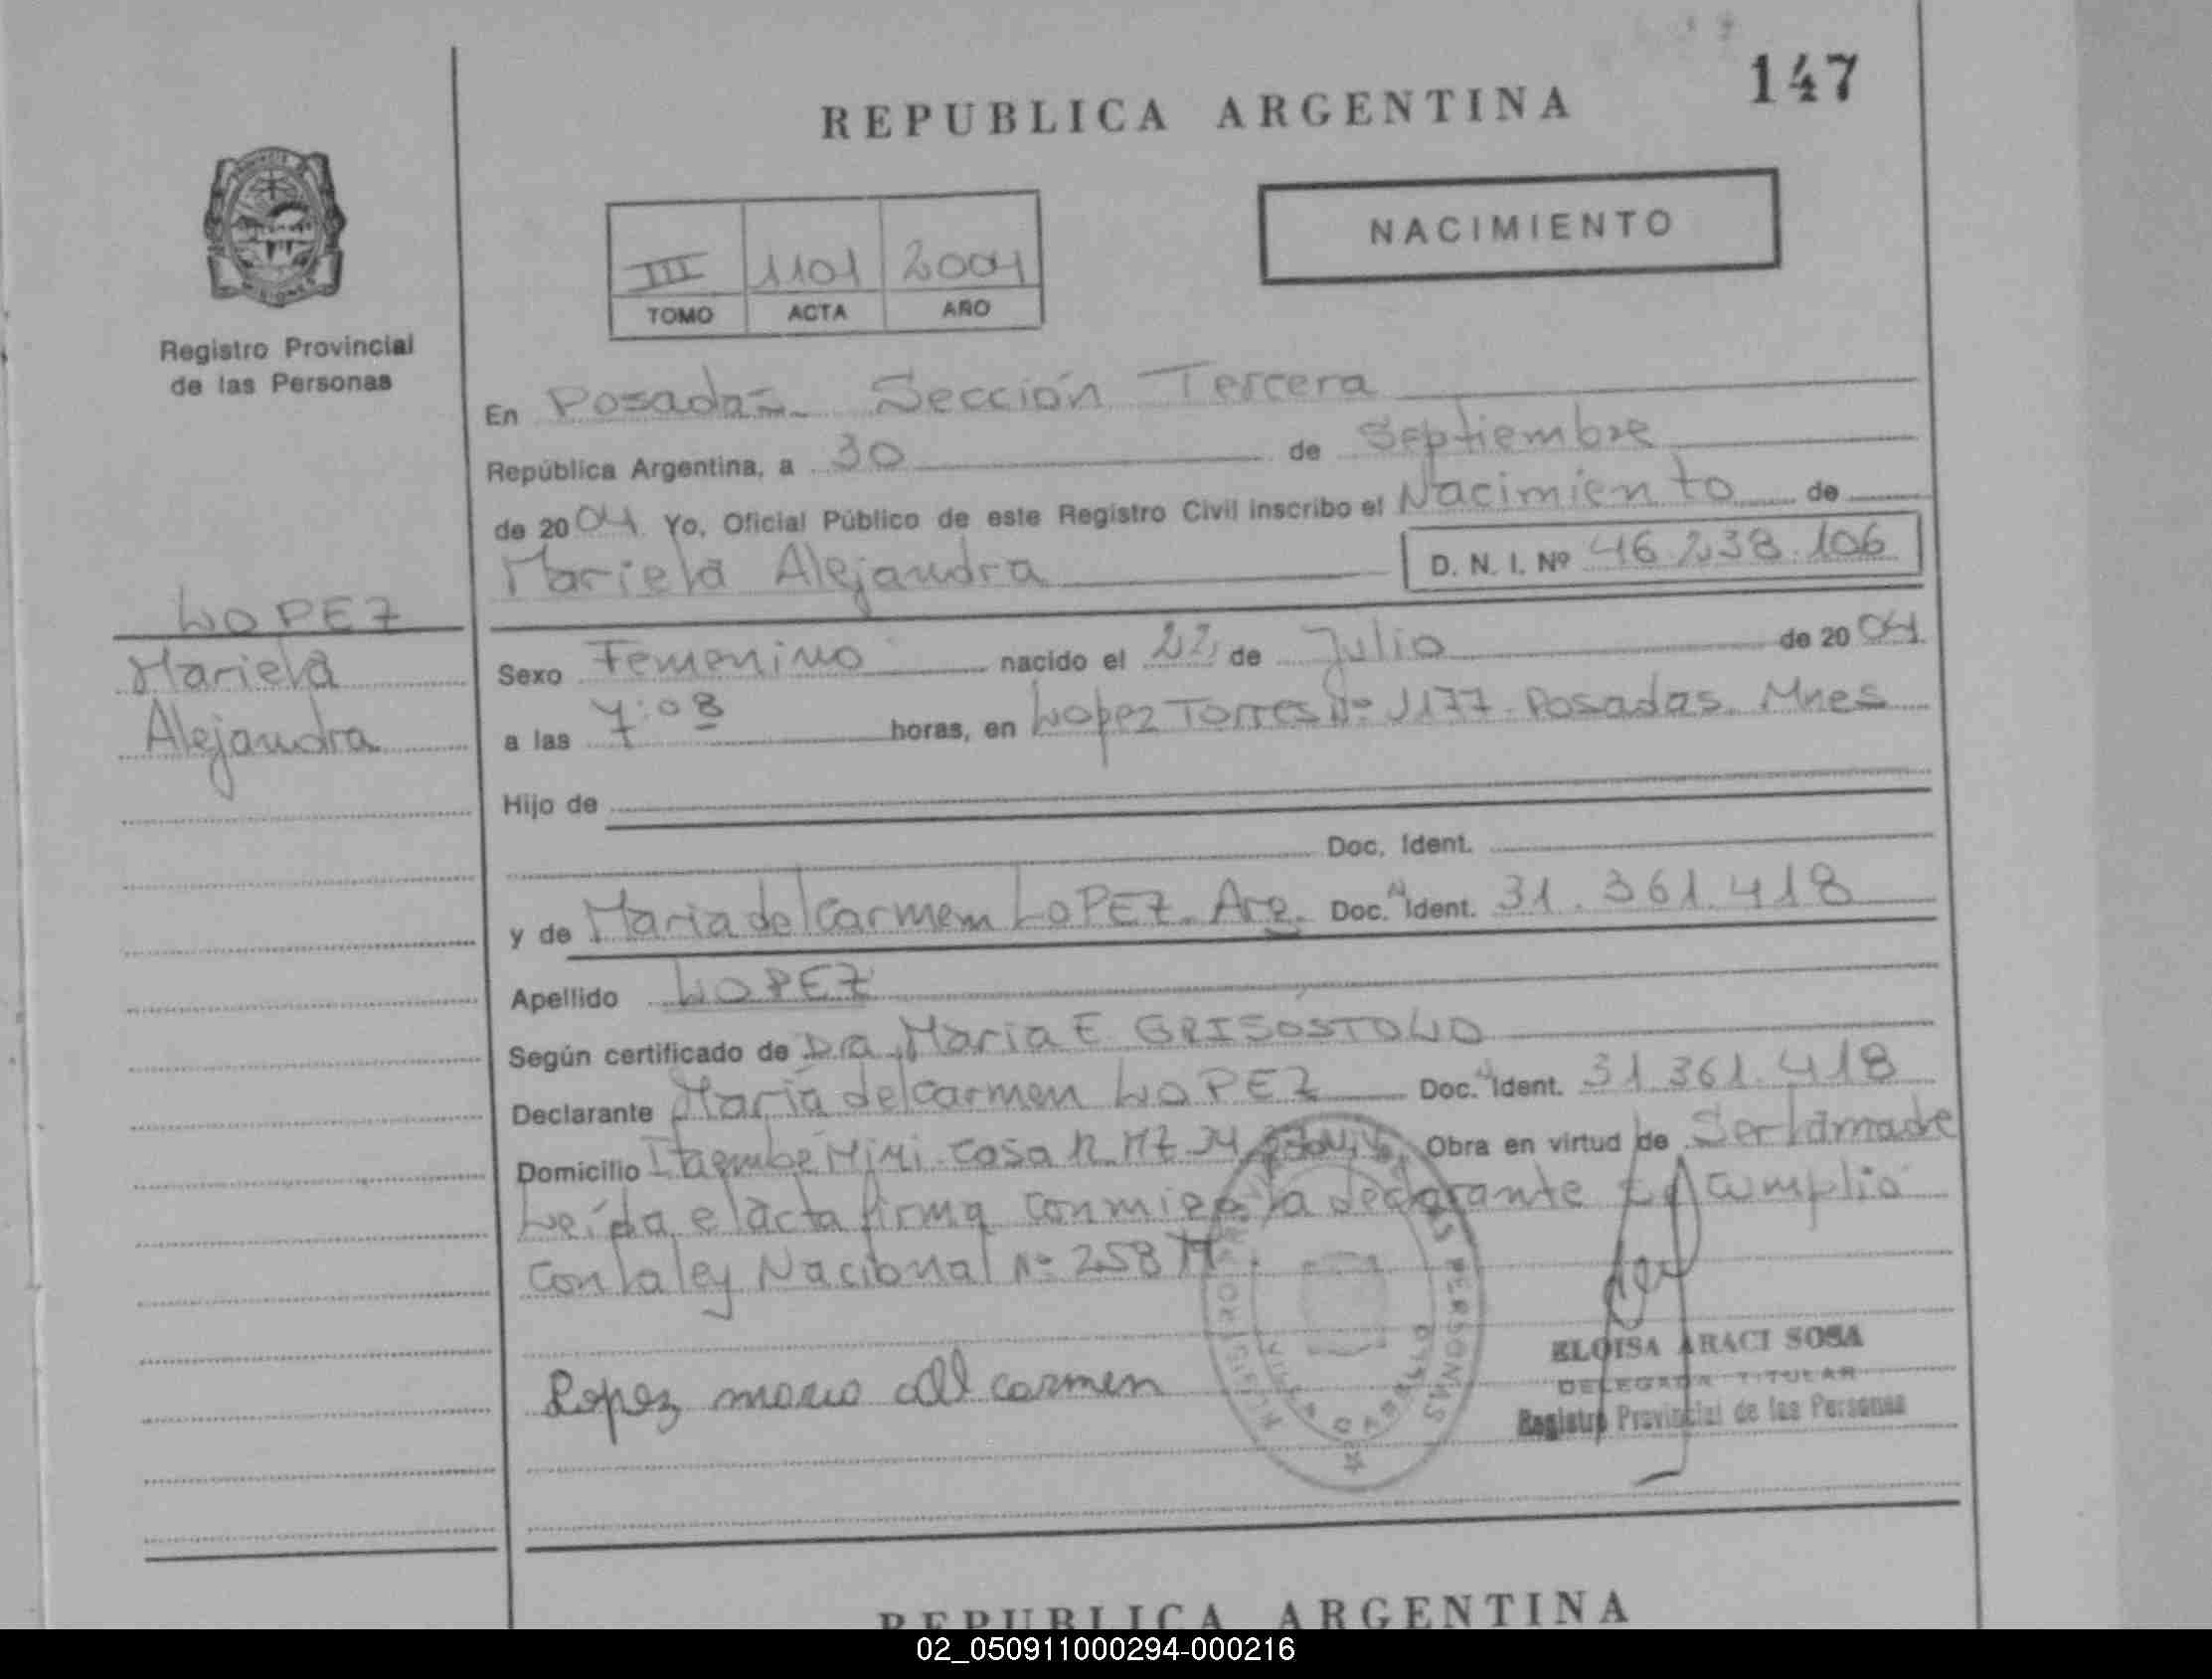 147
REPUBLICA ARGENTINA
NACIMIENTO
III 1101 2004
TOMO ACTA AÑO
MISIONES
Registro Provincial
de las Personas
En Posadas Sección Tercera
República Argentina, a 30 de Septiembre
de 2004. Yo, Oficial Público de este Registro Civil inscribo el Nacimiento de
Mariela Alejandra D. N. I. Nº 46.238.106
LOPEZ
Mariela
Alejandra
Sexo Femenino nacido el 22 de Julio de 2004.
a las 7:08 horas, en Lopez Torres Nº 1177. Posadas. Mnes
Hijo de
Doc. Ident.
y de Maria del Carmem LOPEZ. Arg. Doc. N Ident. 31.361.418
Apellido LOPEZ
Según certificado de Dra. Maria E GRISOSTOLO
Declarante Maria del Carmen LOPEZ Doc. N Ident. 31 361.418
Domicilio Itaembé Mini. Casa 12 MZ 34 Obra en virtud de Ser la madre
Leída el acta firma conmigo la declarante Cumplió
Con la ley Nacional Nº
Lopez maria del carmen
PERSONAS
ELOISA ARACI SOSA
DELEGADA TITULAR
Registro Provincial de las Personas
REPUBLICA ARGENTINA
02_050911000294-000216